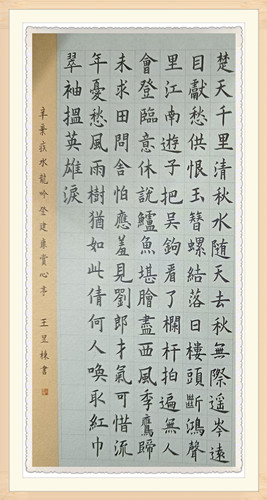 楚天千里清秋水随天去秋無際遥岑遠
目獻愁供恨玉簪螺結落日樓頭斷鴻聲
里江南遊子把吳鉤看了欄杆拍遍無人
會登臨意休說鱸魚堪膾盡西風季鷹歸
未求田問舍怕應羞見劉郎才氣可惜流
年憂愁風雨樹猶如此倩何人喚取紅巾
翠袖搵英雄淚
辛棄疾水龍吟登建康賞心亭 王昱棟書